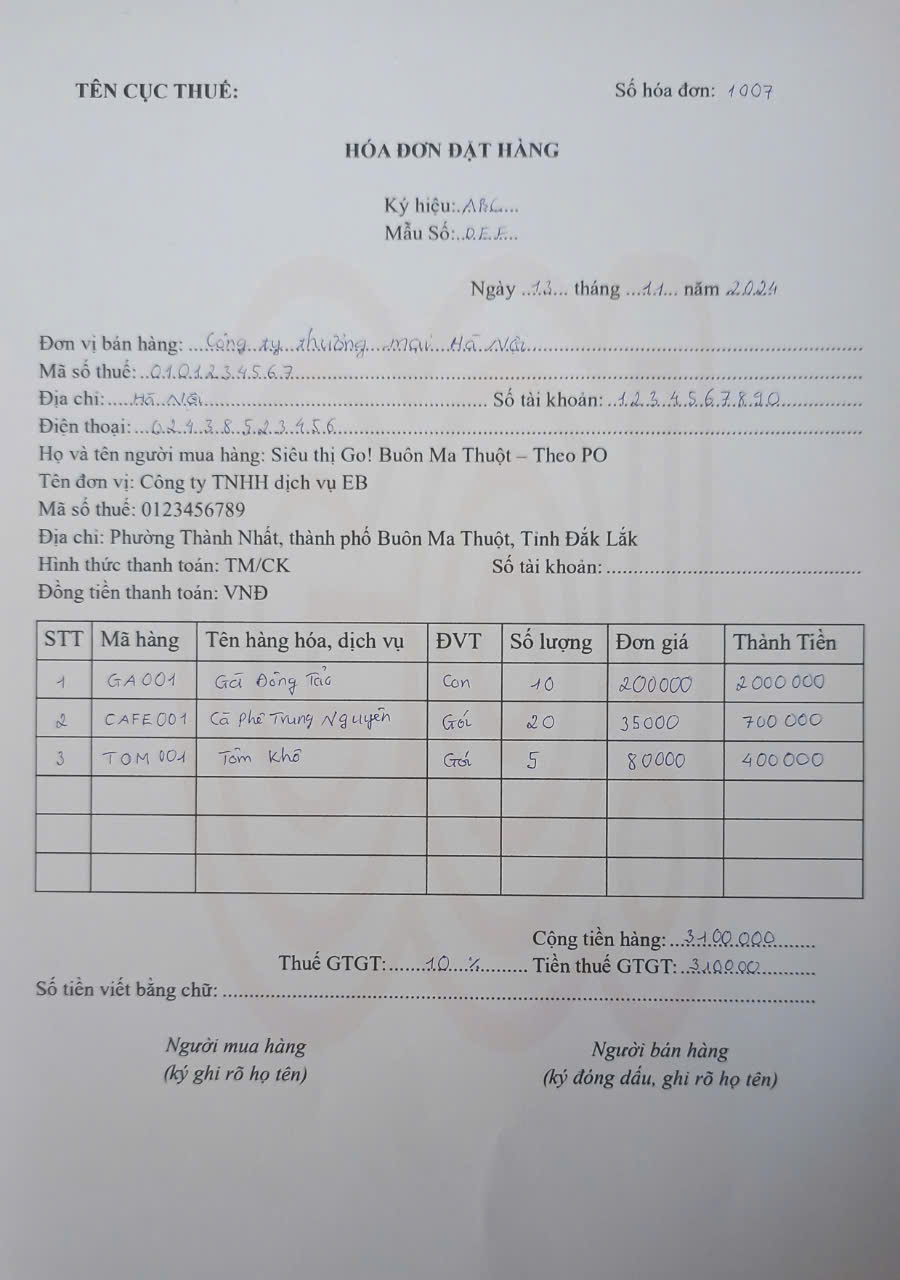 TÊN CỤC THUẾ: Số hóa đơn: 1007
HÓA ĐƠN ĐẶT HÀNG
Ký hiệu: ABC
Mẫu Số: D.E.F
Ngày 13 tháng 11 năm 2024
Đơn vị bán hàng: Công ty thương mại Hà Nội
Mã số thuế: 0101234567
Địa chỉ: Hà Nội Số tài khoản: 1234567890
Điện thoại: 02438523456
Họ và tên người mua hàng: Siêu thị Go! Buôn Ma Thuột – Theo PO
Tên đơn vị: Công ty TNHH dịch vụ EB
Mã số thuế: 0123456789
Địa chỉ: Phường Thành Nhất, thành phố Buôn Ma Thuột, Tỉnh Đắk Lắk
Hình thức thanh toán: TM/CK Số tài khoản:
Đồng tiền thanh toán: VNĐ
STT Mã hàng Tên hàng hóa, dịch vụ ĐVT Số lượng Đơn giá Thành Tiền
1 GA001 Gà Đông Tảo Con 10 200000 2000000
2 CAFE001 Cà phê Trung Nguyên Gói 20 35000 700000
3 TOM001 Tôm khô Gói 5 80000 400000
Cộng tiền hàng: 3100.000
Thuế GTGT: 10 % Tiền thuế GTGT: 310000
Số tiền viết bằng chữ:
Người mua hàng Người bán hàng
(ký ghi rõ họ tên) (ký đóng dấu, ghi rõ họ tên)